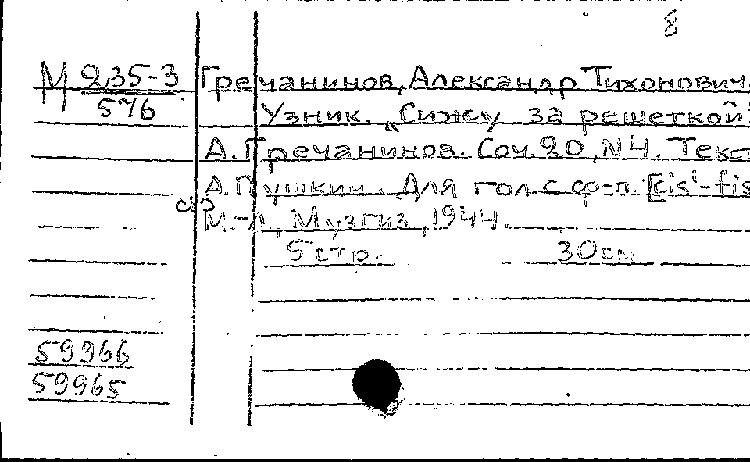 8
М 235-3 Гречанинов, Александр Тихонович.
576 Узник. „Сижу за решеткой
А. Гречанинов. Соч. 20, N4. Текст
А. Пушкин. Для гол. с ф-п. [cis¹-fis
М.-Л., Музгиз, 1944.
5 стр. 30 см.
59966
59965